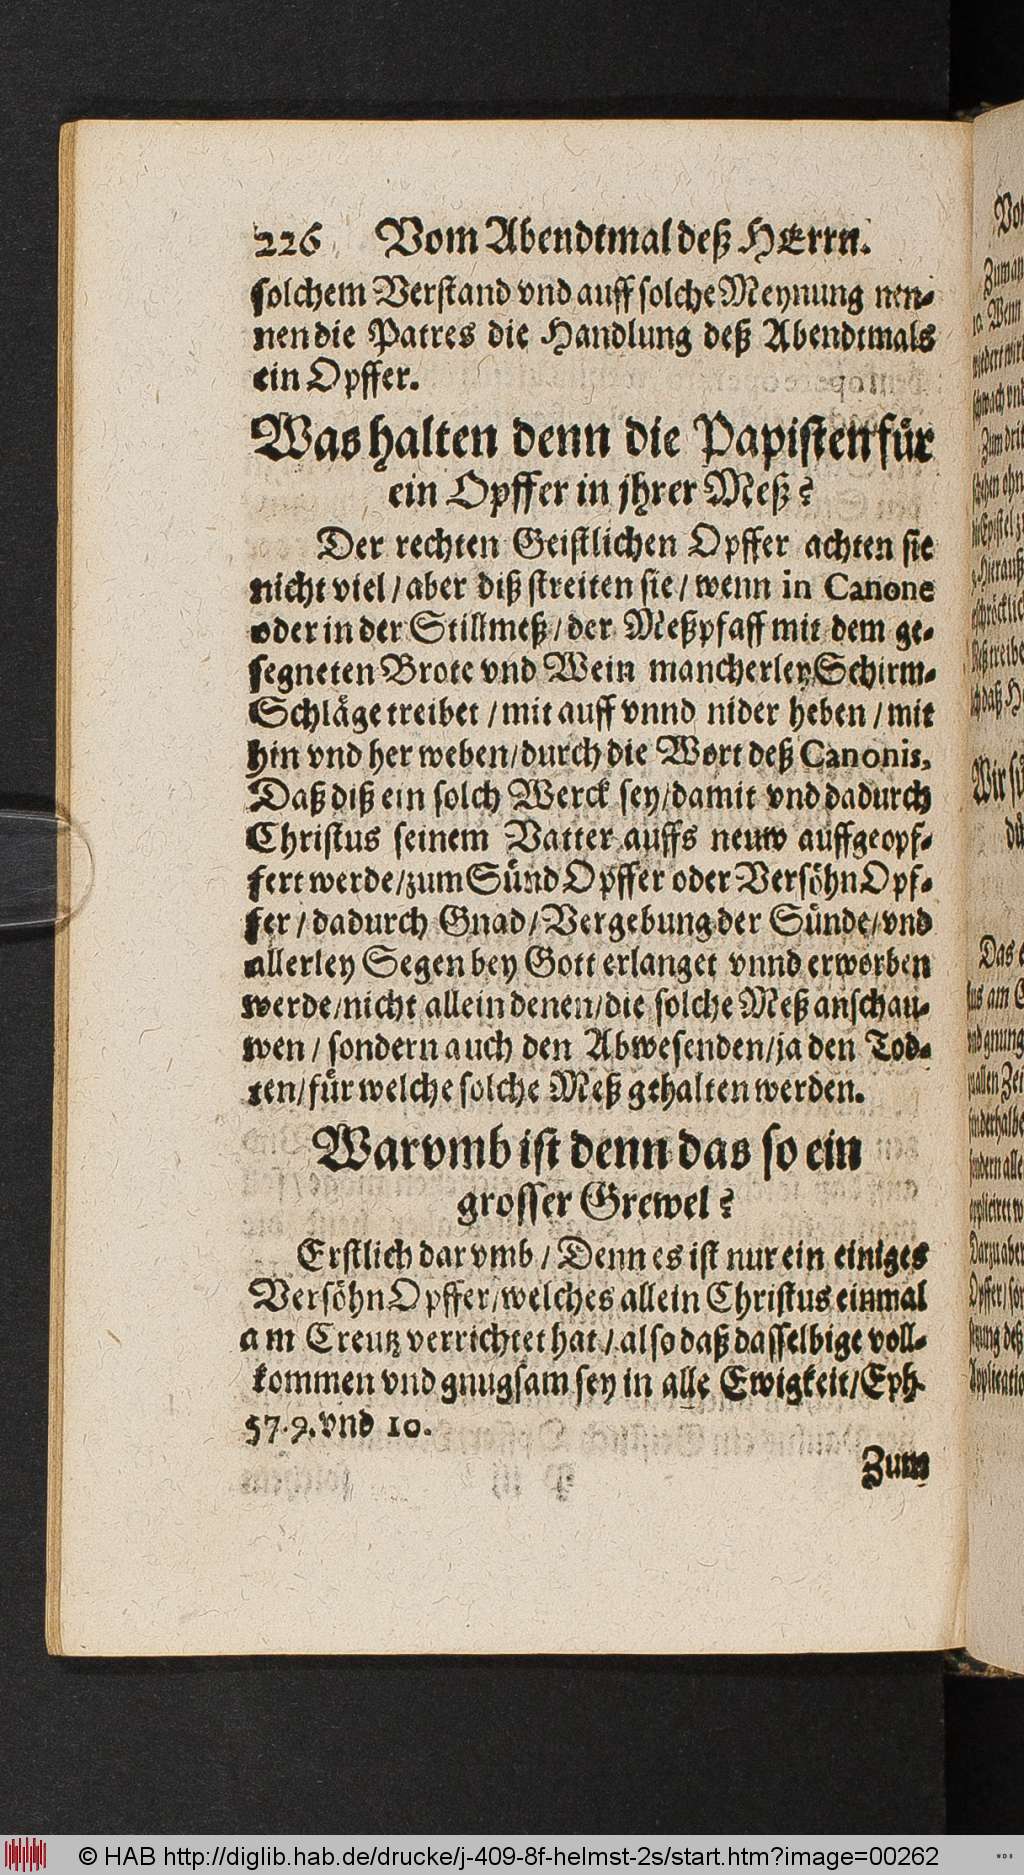 226 Vom Abendtmal deß HErrn.
solchem Verstand vnd auff solche Meynung nen-
nen die Patres die Handlung deß Abendtmals
ein Opffer.
Was halten denn die Papisten für
ein Opffer in jhrer Meß?
Der rechten Geistlichen Opffer achten sie
nicht viel / aber diß streiten sie / wenn in Canone
oder in der Stillmeß / der Meßpfaff mit dem ge-
segneten Brote vnd Wein mancherley Schirm-
Schläge treibet / mit auff vnnd nider heben / mit
hin vnd her weben / durch die Wort deß Canonis,
Daß diß ein solch Werck sey / damit vnd dadurch
Christus seinem Vatter auffs neuw auffgeopf-
fert werde / zum Sünd Opffer oder Versöhn Opf-
fer / dadurch Gnad / Vergebung der Sünde / vnd
allerley Segen bey Gott erlanget vnnd erworben
werde / nicht allein denen / die solche Meß anschau-
wen / sondern auch den Abwesenden / ja den Tod-
ten / für welche solche Meß gehalten werden.
Warvmb ist denn das so ein
grosser Grewel?
Erstlich darvmb / Denn es ist nur ein einiges
Versöhn Opffer / welches allein Christus einmal
am Creutz verrichtet hat / also daß dasselbige voll-
kommen vnd gnugsam sey in alle Ewigkeit / Eph.
57.9. vnd 10.
Zum
© HAB http://diglib.hab.de/drucke/j-409-8f-helmst-2s/start.htm?image=00262